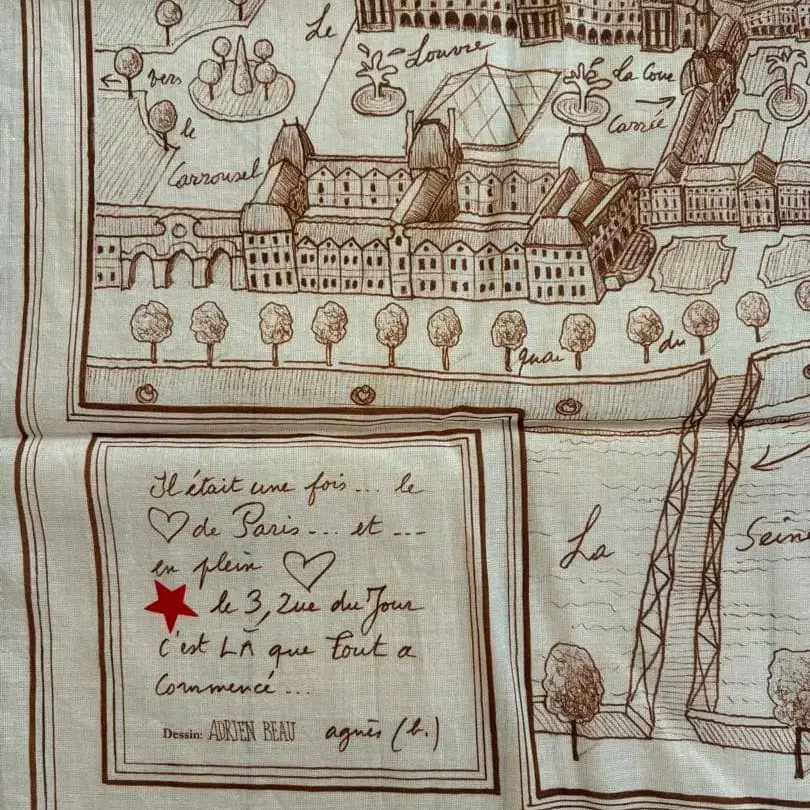 Le
Louvre
La Cour
Carrée
vers
le
Carrousel
quai
du
La
Seine
Il était une fois ... le
de Paris ... et ...
en plein
le 3, Rue du Jour
c'est LÀ que tout a
commencé ...
Dessin: ADRIEN BEAU agnès (b.)